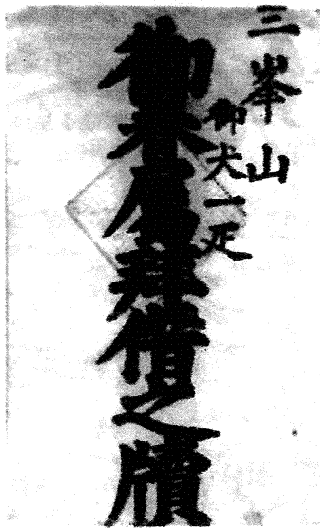 三峯山
御犬一疋
御眷属拜借之牘